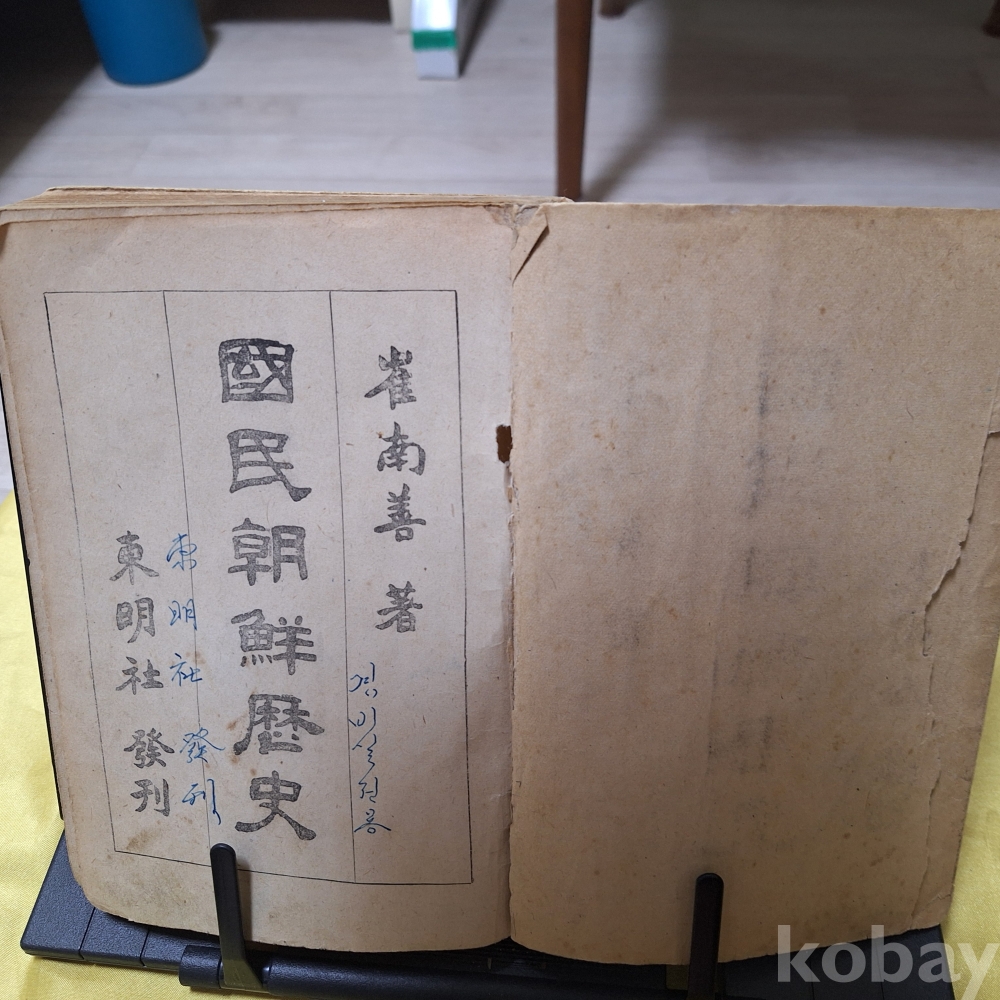 崔南善 著
國民朝鮮歷史
東明社 發刊
東明社 發刊
kobay